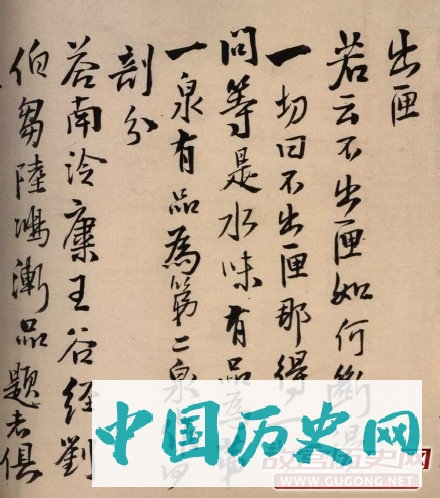 出匣
若云不出匣如何
一切曰不出匣那得
問等是水味有品
一泉有品為第二泉
剖分
答南泠康王谷經劉
伯芻陸鴻漸品題者俱
中国历史网
WWW.GUGONG.NET